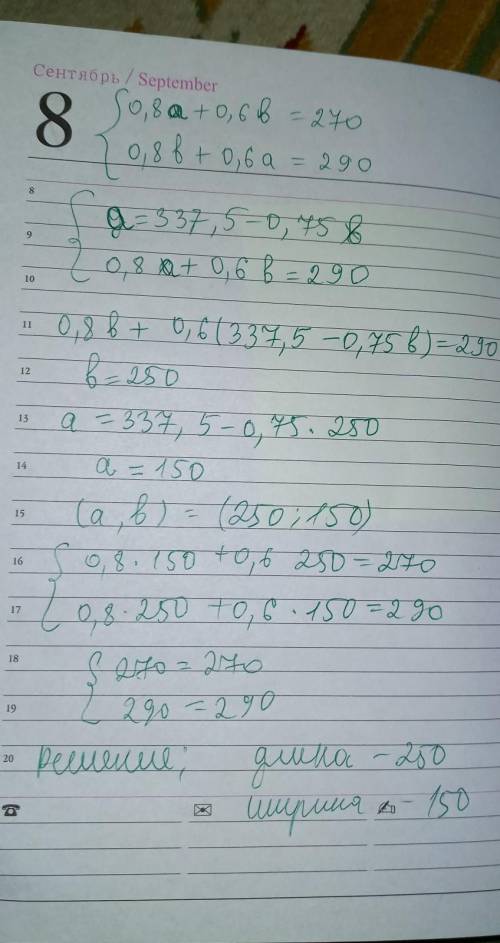 Сентябрь / September
8
{ 0,8a + 0,6b = 270
0,8b + 0,6a = 290
8
{ a = 337,5 - 0,75 b
9
0,8a + 0,6b = 290
10
11 0,8b + 0,6(337,5 - 0,75b) = 290
12 b = 250
13 a = 337,5 - 0,75 · 250
14 a = 150
15 (a, b) = (250; 150)
16 { 0,8 · 150 + 0,6 250 = 270
17 0,8 · 250 + 0,6 · 150 = 290
18 { 270 = 270
19 290 = 290
20 Решение; длина - 250
ширина - 150